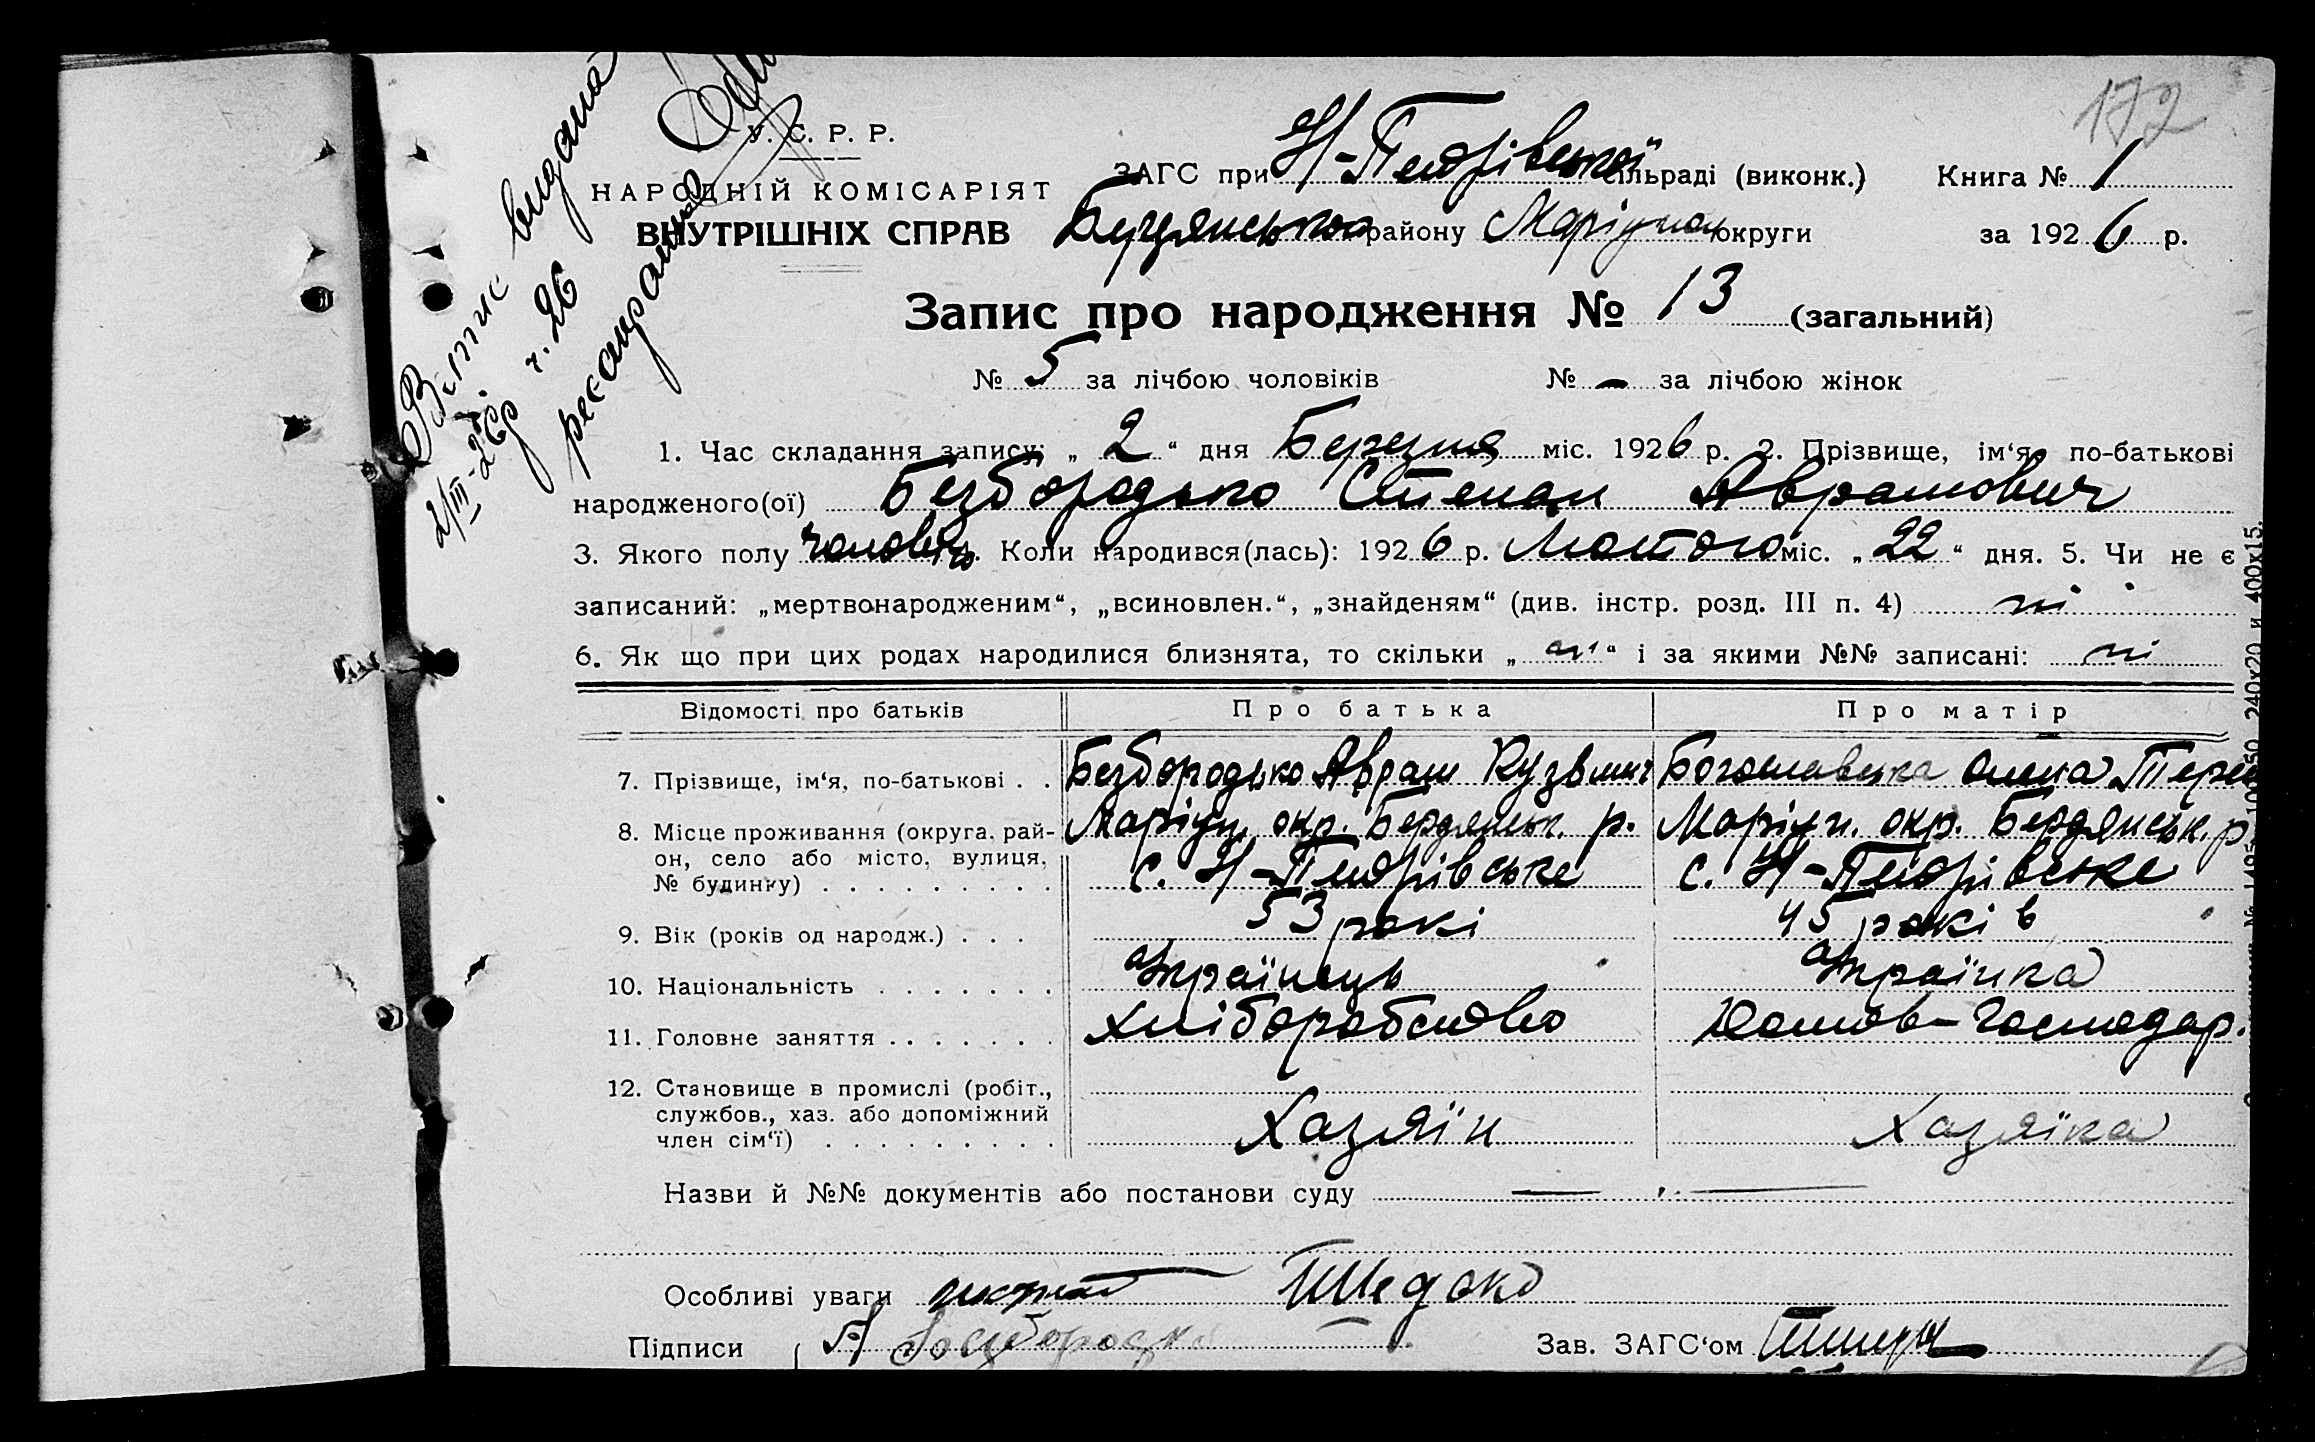 172
Витис видана
2/III-26р. ч. 26
У. С. Р. Р.
НАРОДНІЙ КОМІСАРІЯТ
ВНУТРІШНІХ СПРАВ
ЗАГС при Н-Петрівської сільраді (виконк.) Книга № 1
району Маріупол округи за 1926 р.
Запис про народження № 13 (загальний)
№ 5 за лічбою чоловіків № – за лічбою жінок
1. Час складання запису: „ 2 “ дня Березня міс. 1926 р. 2. Прізвище, ім‘я, по-батькові
народженого(ої) Безбородько Степан Аврамович
3. Якого полу чоловіч. Коли народився(лась): 1926 р. Лютого міс. „ 22 “ дня. 5. Чи не є
записаний: „мертвонародженим“, „всиновлен.“, „знайденям“ (див. інстр. розд. III п. 4) ні
6. Як що при цих родах народилися близнята, то скільки „ ні “ і за якими №№ записані: ні
Відомості про батьків Про батька Про матір
7. Прізвище, ім‘я, по-батькові . . Безбородько Аврам Кузьмич Богославська Олена Тере
8. Місце проживання (округа, рай- Маріуп. окр. Бердянськ. р. Маріуп. окр. Бердянськ. р
он, село або місто, вулиця, с. Н-Петрівське с. Н-Петрівське
№ будинку) . . . . . . . . .
9. Вік (років од народж.) . . . 53 рокі 45 років
10. Національність . . . . . . . Українець Українка
11. Головне заняття . . . . . . . Хліборобство Домов-господар.
12. Становище в промислі (робіт.,
службов., хаз. або допоміжний
член сім‘ї) . . . . . . . . . Хазяїн Хазяїка
Назви й №№ документів або постанови суду — —
Особливі уваги
Підписи А Безбородько Зав. ЗАГС‘ом
240х20 и 400х15.